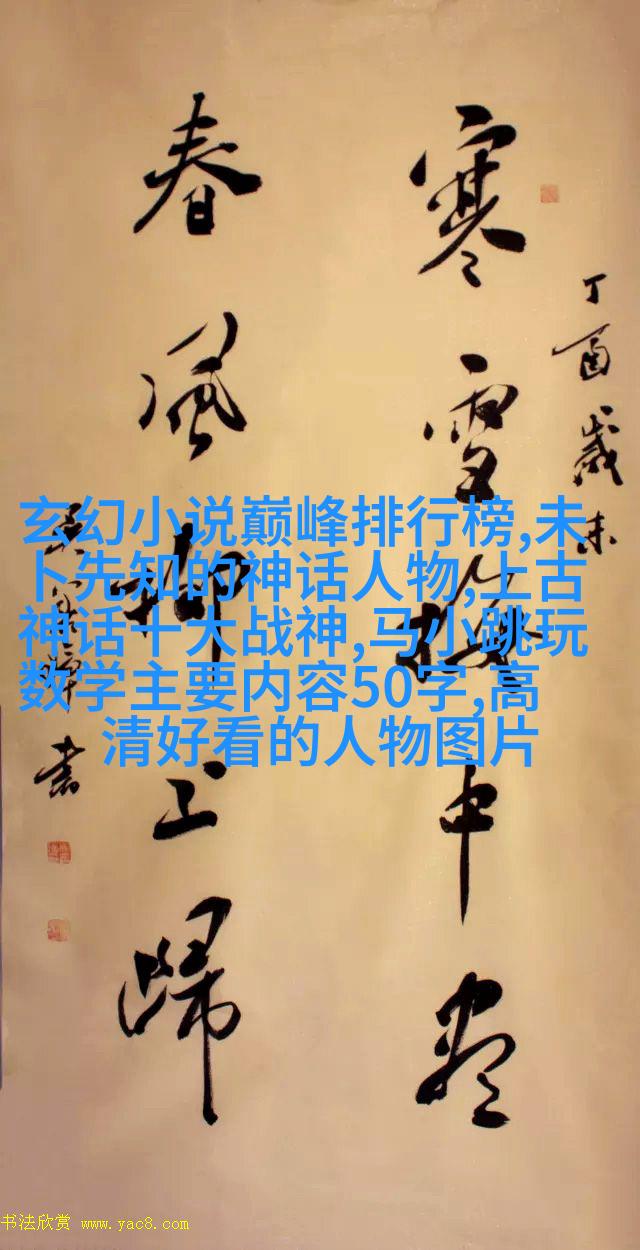 丁酉岁末
寒雪梅中尽
春风柳上归
书
玄幻小说巅峰排行榜,未
卜先知的神话人物,上古
神话十大战神,马小跳玩
数学主要内容50字,高
清好看的人物图片
书法欣赏 www.yac8.com